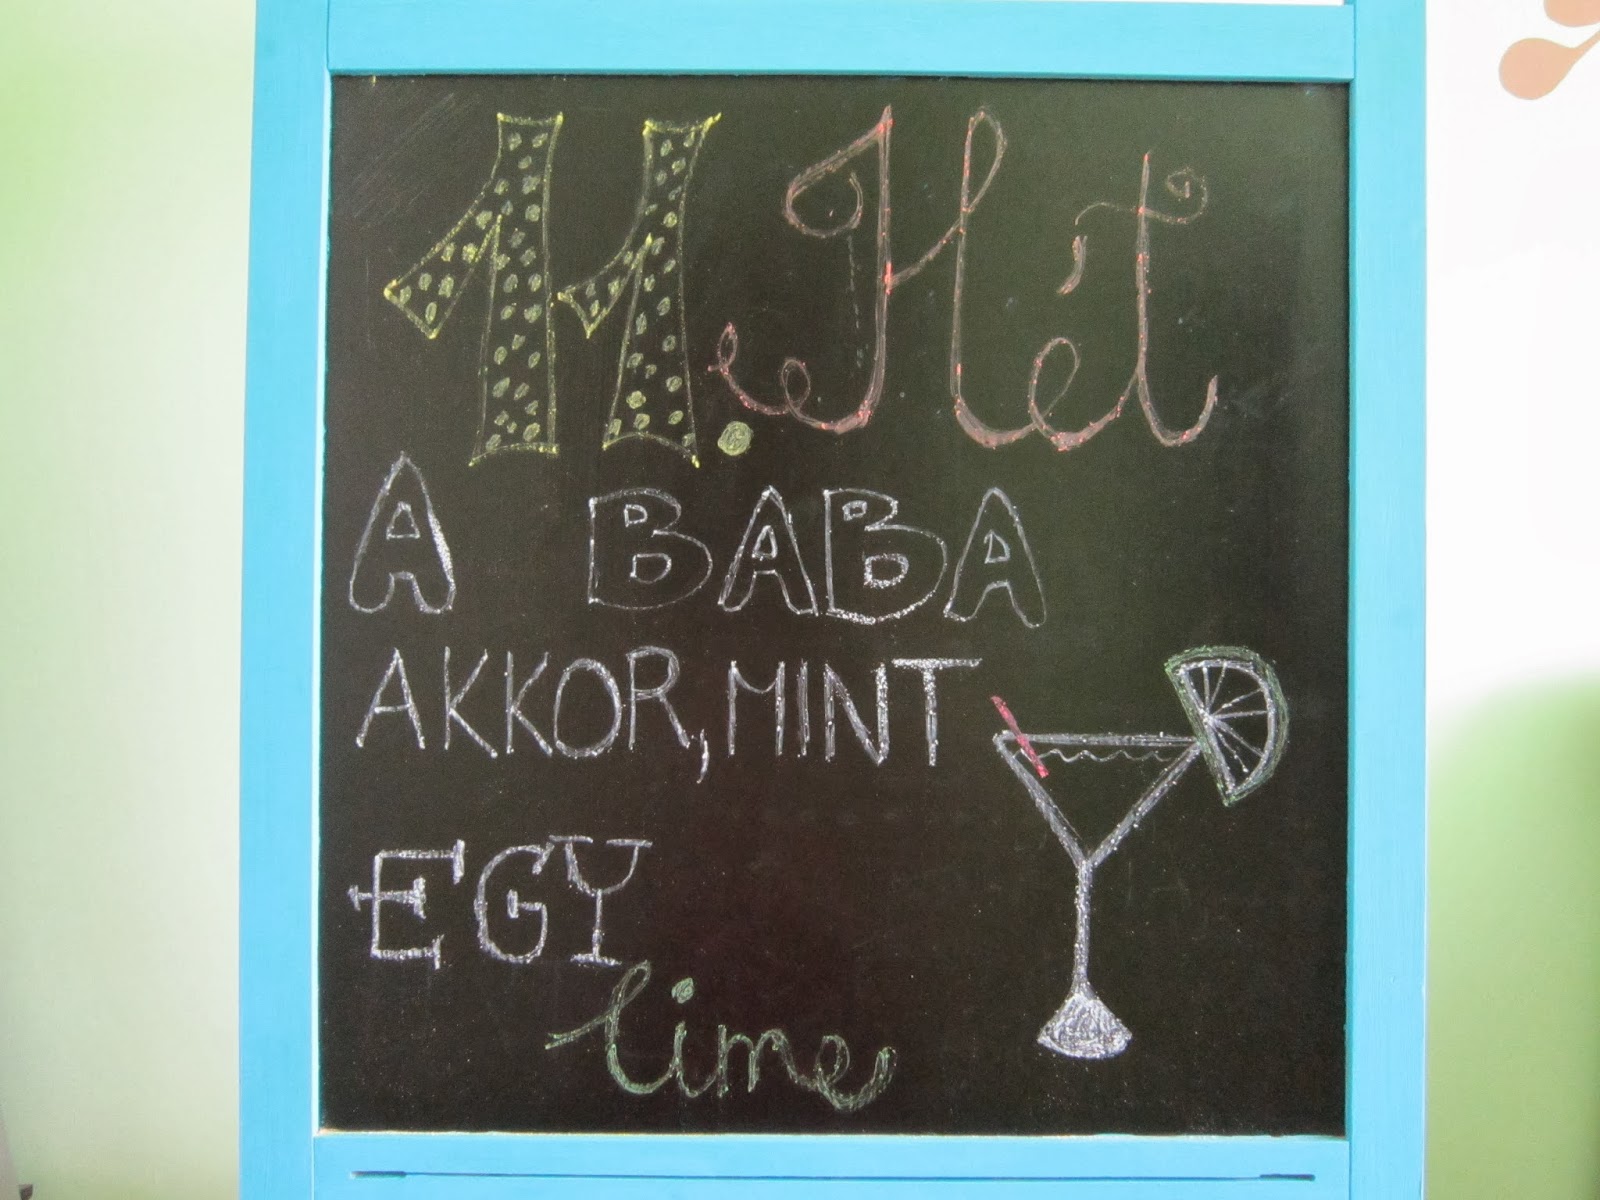 11. Hét
A BABA
AKKOR, MINT
EGY
lime